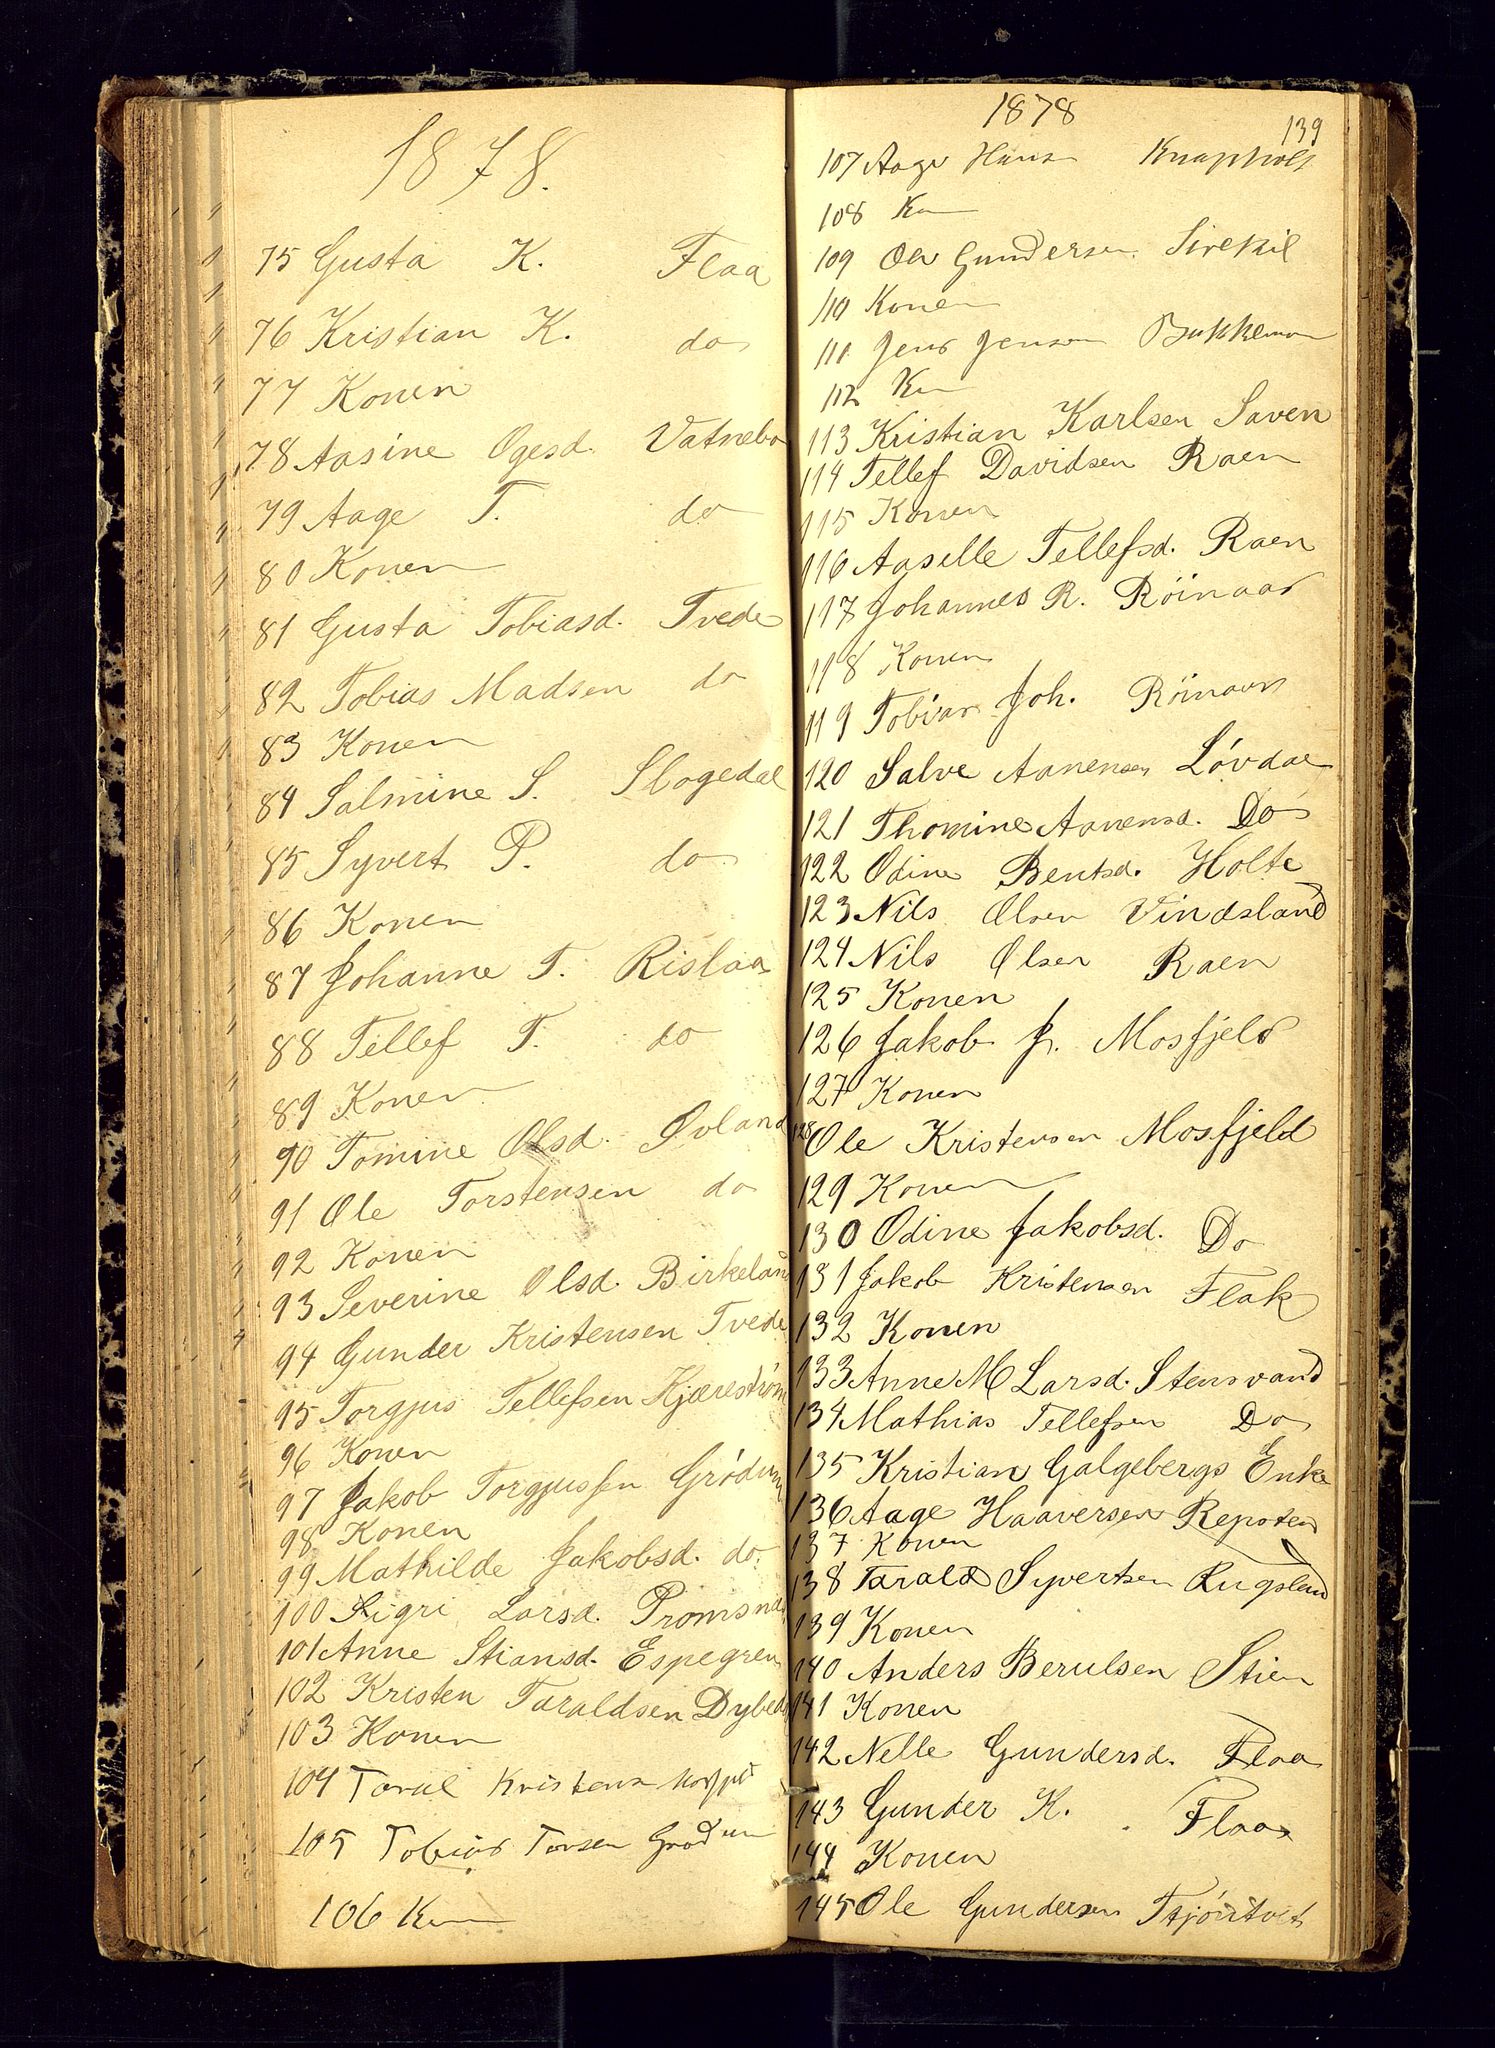 1878.
75 Gusta K. Flaa
76 Kristian K. do
77 Konen
78 Aasine Ogesd. Vatnebo
79 Aage T. do
80 Konen
81 Gusta Tobiasd. Tvede
82 Tobias Madsen do
83 Konen
84 Salmine S. Slogedal
85 Syvert P. do
86 Konen
87 Johanne T. Rislaa
88 Tellef T. do
89 Konen
90 Tomine Olsd. Øvland
91 Ole Torstensen do
92 Konen
93 Severine Olsd. Birkeland
94 Gunder Kristensen Tvede
95 Torgjus Tellefsen Kjærestrøm
96 Konen
97 Jakob Torgjussen Grødum
98 Konen
99 Mathilde Jakobsd. do.
100 Sigri Larsd. Promsnas
101 Anne Stiansd. Espegren
102 Kristen Taraldsen Dybedal
103 Konen
104 Taral Kristens
105 Tobias Torsen Grødum
106 Kn
1878
139
107 Aage Hans Knapholt
108 Kn
109 Ole Gundersen Sirekil
110 Konen
111 Jens Jensen Bukkemon
112 Kn
113 Kristian Karlsen Saven
114 Tellef Davidsen Raen
115 Konen
116 Aaselle Tellefsd. Raen
117 Johannes R. Röinaas
118 Konen
119 Tobias Joh. Röinaas
120 Salve Aanensen Lövdal
121 Thomine Aanensd. Do
122 Odine Bentsd. Holte
123 Nils Olsen Vindsland
124 Nils Olsen Raen
125 Konen
126 Jakob J. Mosfjeld
127 Konen
128 Ole Kristensen Mosfjeld
129 Konen
130 Odine Jakobsd. Do
131 Jakob Kristensen Flak
132 Konen
133 Anne M Larsd. Stensvand
134 Mathias Tellefsen Do
135 Kristian Galgebergs Enke
136 Aage Haaversen Repsten
137 Konen
138 Tarald Syvertsen Rugsland
139 Konen
140 Anders Berulsen Stien
141 Konen
142 Nelle Gundersd. Flaa
143 Gunder K. Flaa
144 Konen
145 Ole Gundersen